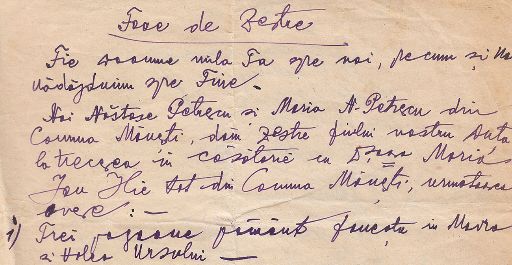 Foae de Zestre
Fie doamne mila Ta spre noi, pe cum și No
nădăjduim spre Tine.
Noi Năstase Petrecu si Maria N. Petrecu din
Comuna Mănești, dăm zestre fiului nostru Anto
la trecerea in căsătorie cu Maria
Ion Ilie tot din Comuna Mănești, urmatoarea
avere : —
1) Trei pogoane pământ in
si Holea Ursului —